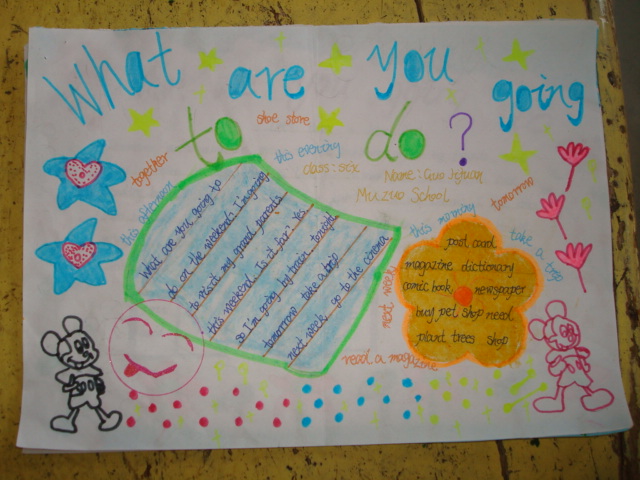 What are you going
to do ?
shoe store
together
this evening
class: six
Name: Guo
Muzuo School
this afternoon
this morning
tomorrow
take a trip
next week
read a magazine
What are you going to
do on the weekend? I'm going
to visit my grand parents
this weekend. Is it far? Yes
so I'm going by train. tonight
tomorrow take a trip
next week go to the cinema
post card
magazine dictionary
comic book newspaper
buy pet shop need
plant trees shop